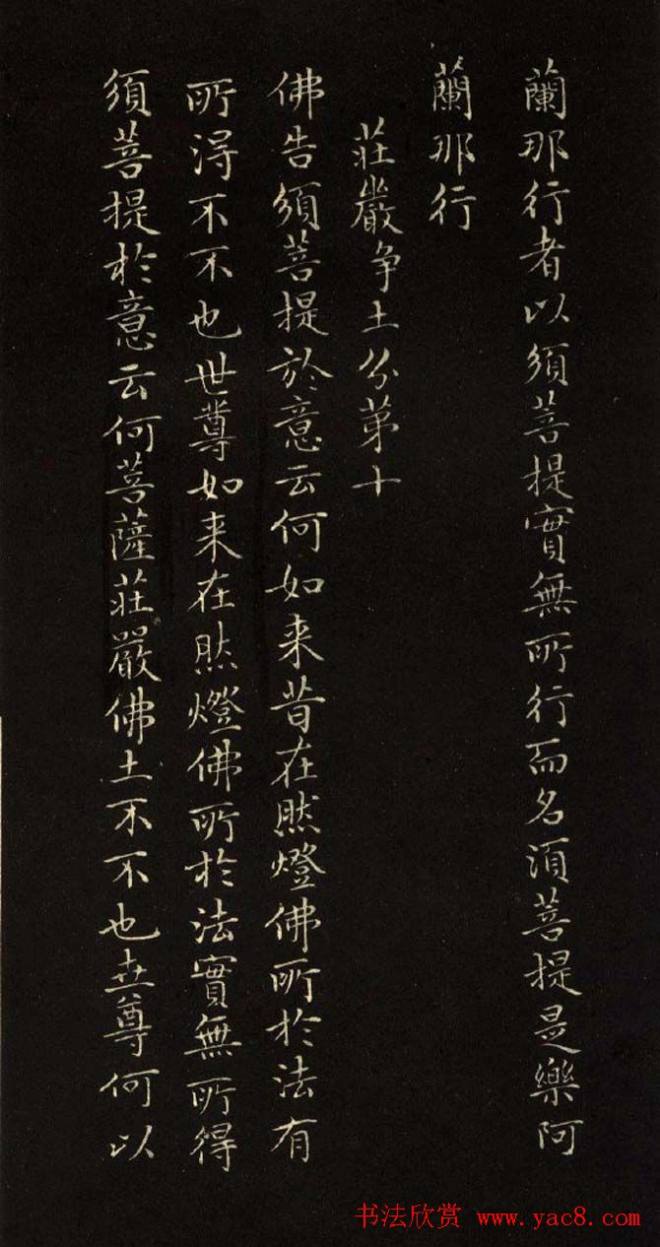 蘭那行者以須菩提實無所行而名須菩提是樂阿
蘭那行
莊嚴争土分第十
佛告須菩提於意云何如来昔在然燈佛所於法有
所得不不也世尊如来在然燈佛所於法實無所得
須菩提於意云何菩薩莊嚴佛土不不也世尊何以
书法欣赏 www.yac8.com